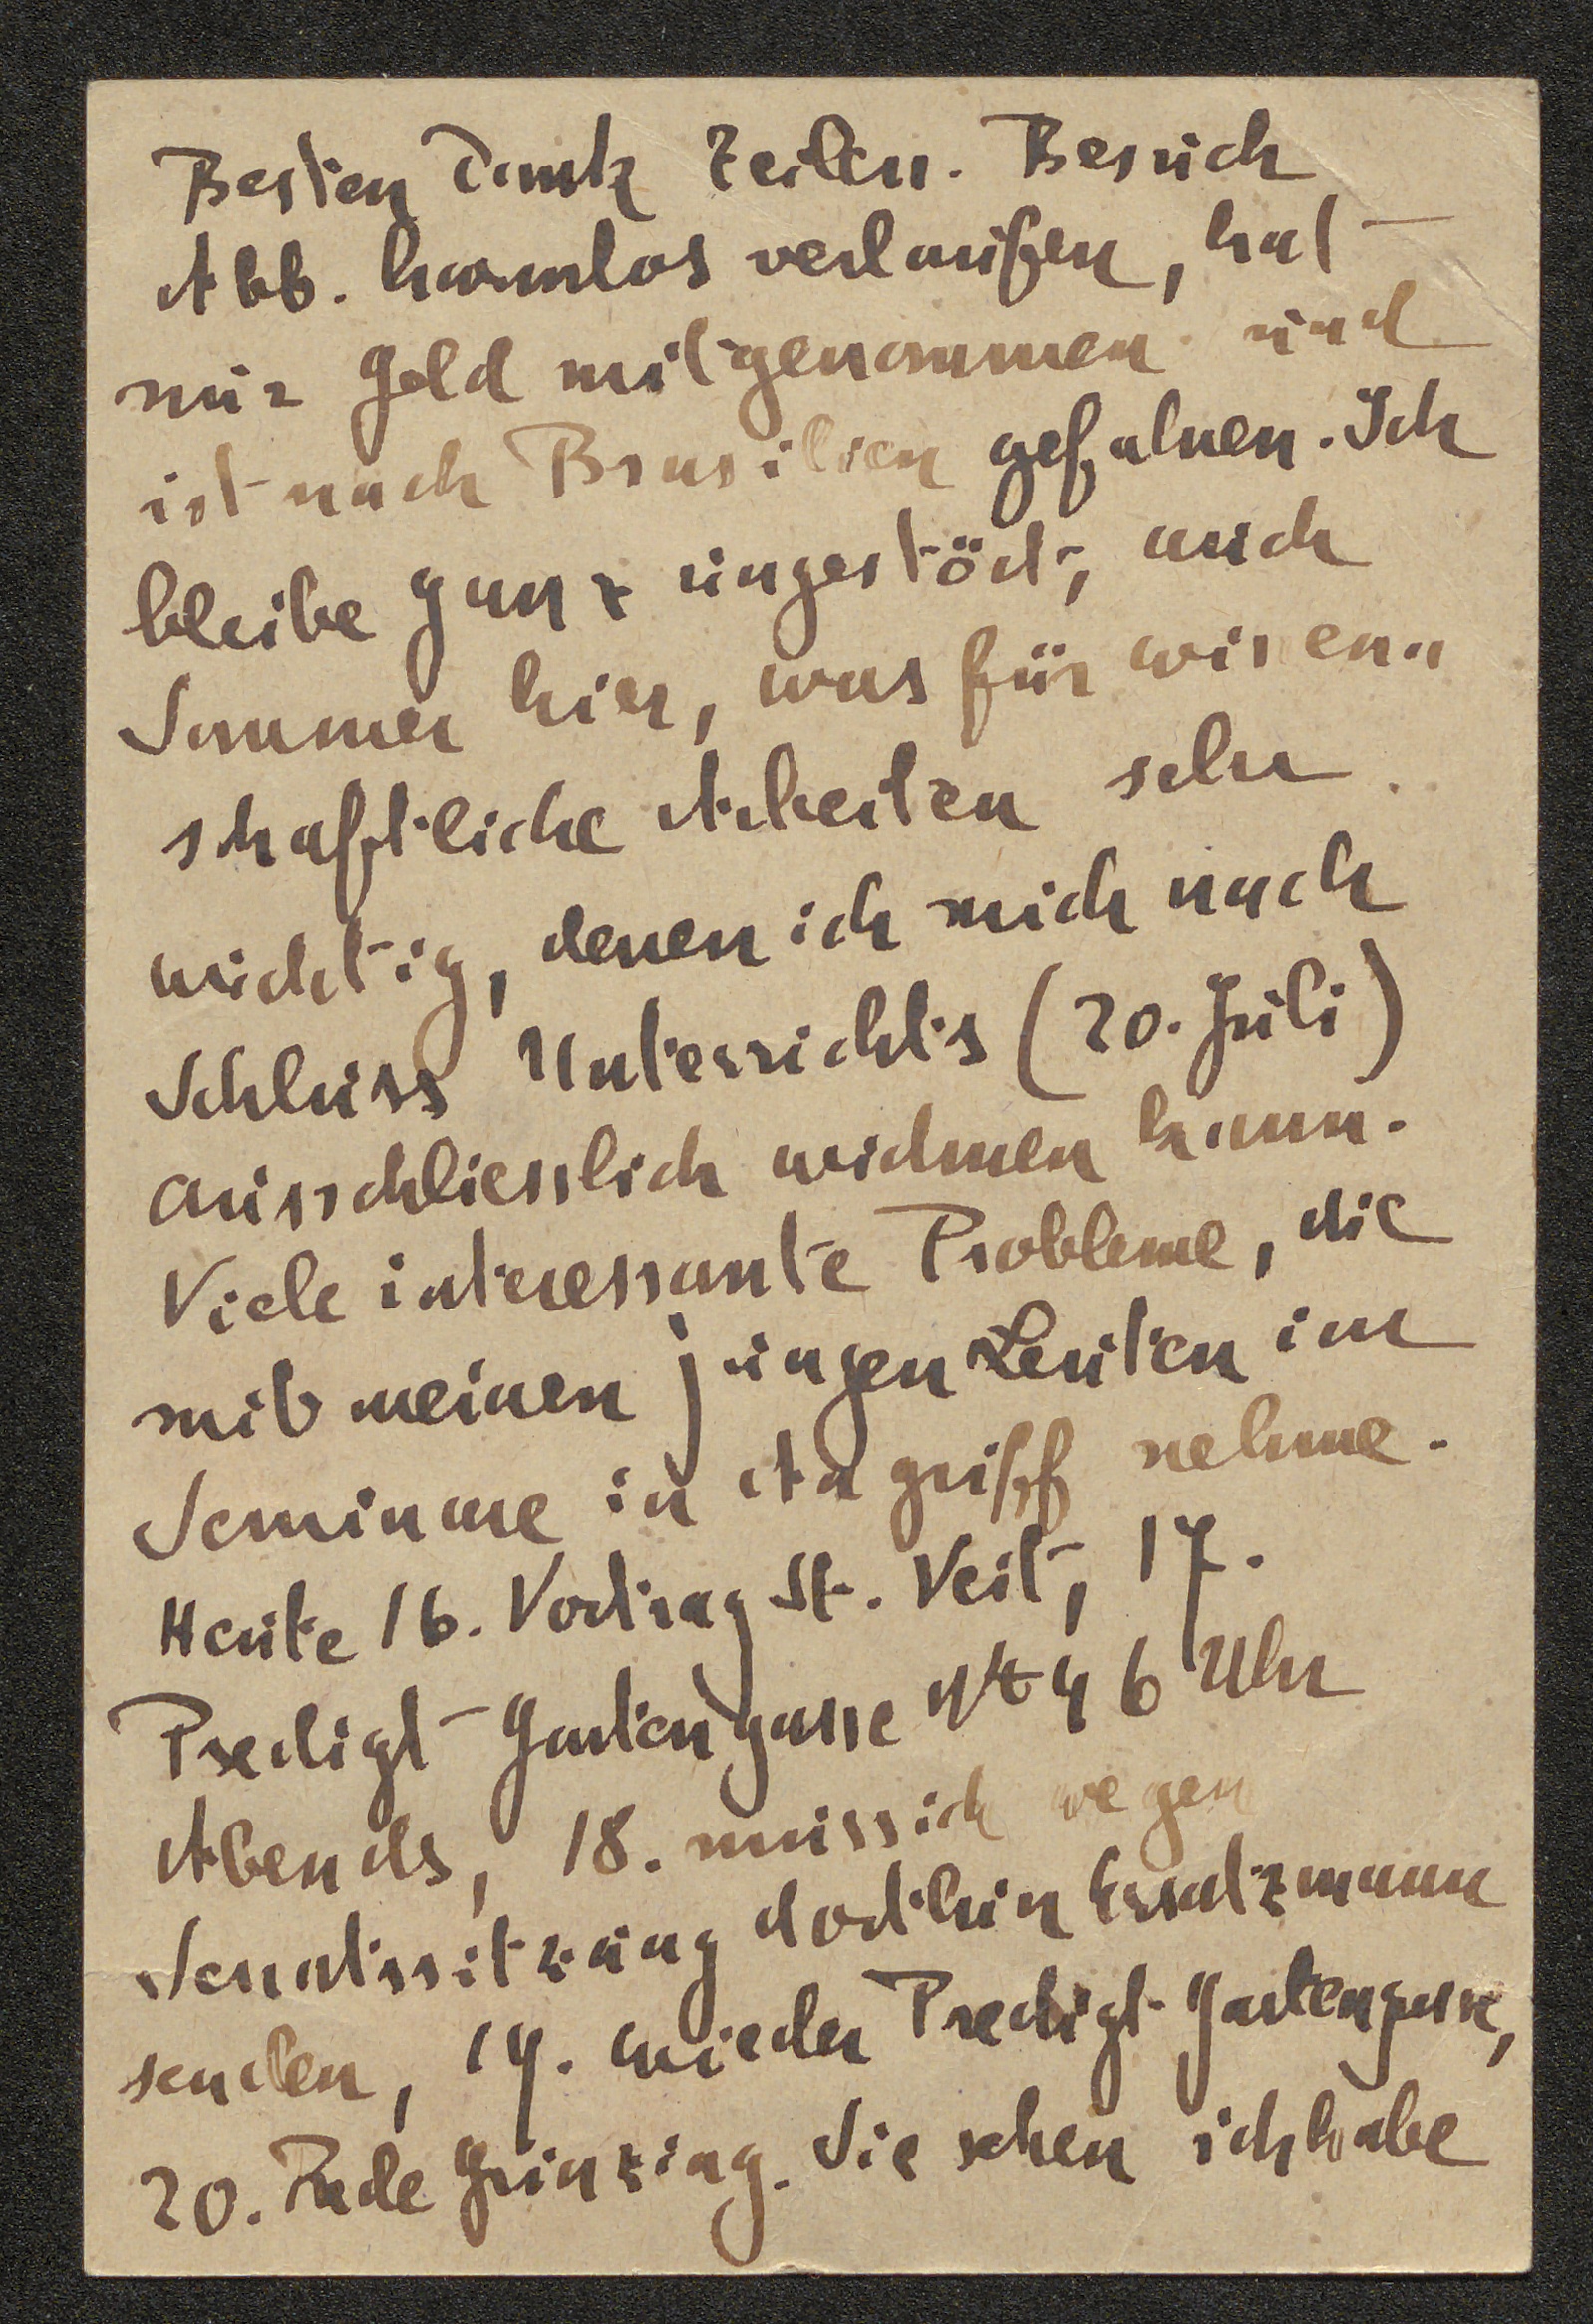 Besten Dank Zeilen. Besuch
Abb. harmlos verlaufen, hat
nur Geld mitgenommen und
ist nach Brasilien gefahren. Ich
bleibe ganz ungestört, auch
Sommer hier, was für wissen-
schaftliche Arbeiten sehr
wichtig, denen ich mich nach
Schluss Unterrichts (20. Juli)
ausschliesslich widmen kann.
Viele interessante Probleme, die
mit meinen jungen Leuten im
Seminare in Angriff nehme.
Heute 16. Vortrag St. Veit, 17.
Predigt Gartengasse 6 Uhr
Abends, 18. muss ich wegen
Senatssitzung dorthin Ersatzmann
senden, 19. wieder Predigt Gartengasse,
20. Rede Grinzing. Sie sehen ich habe